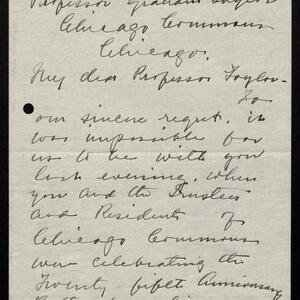 Professor Graham Taylor
Chicago Commons
Chicago.
My dear Professor Taylor-
To
our sincere regret, it
was impossible for
us to be with you
last evening, when
you and the Trustees
and Residents of
Chicago Commons
were celebrating the
Twenty-fifth Anniversary